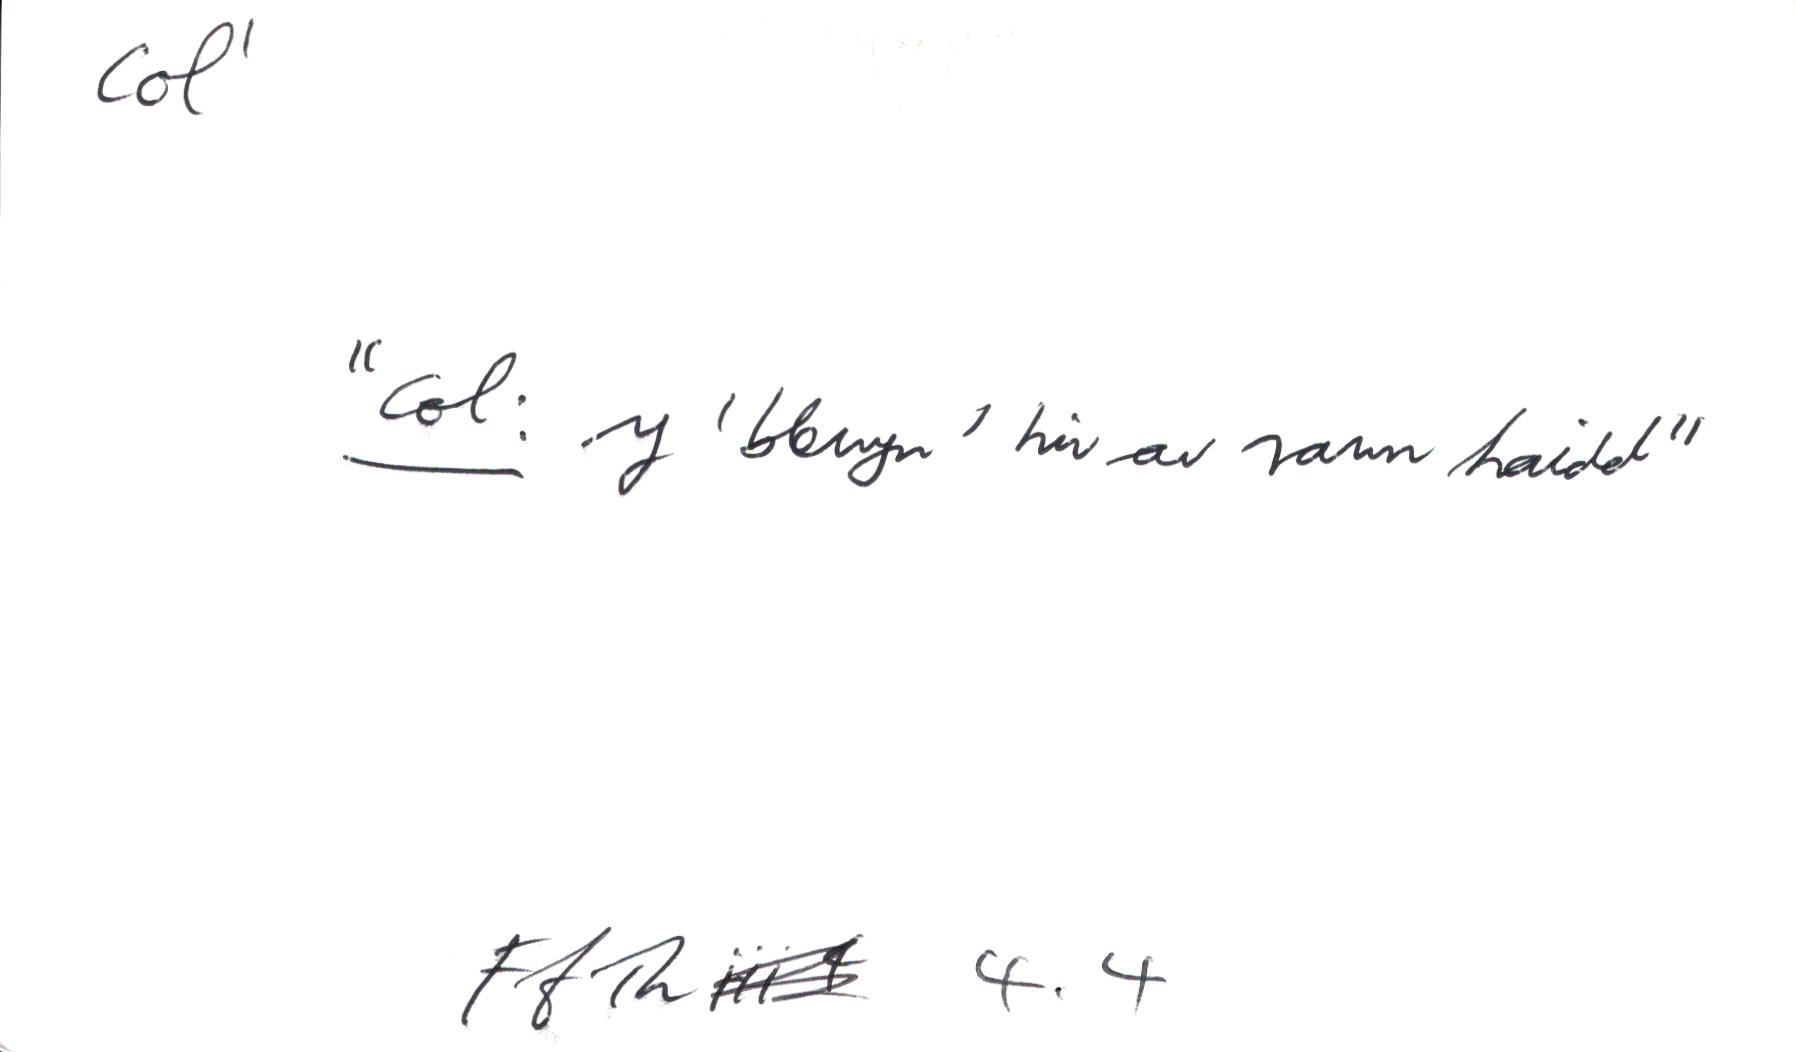 Col'
"Col: y 'blewyn' hir ar rawn haidd"
Ff Th 4.4